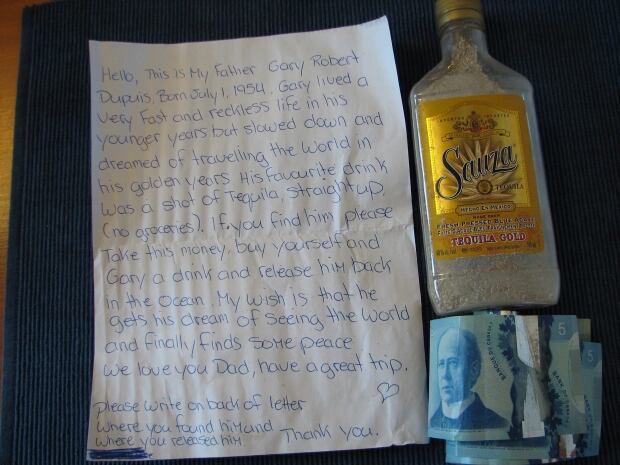 Hello, This is My Father Gary Robert
Dupuis, Born July 1, 1954. Gary lived a
very Fast and reckless life in his
younger years but slowed down and
dreamed of travelling the World in
his golden years. His Favourite drink
was a shot of Tequila, straight up
(no groceries). If you find him please
Take this money, buy yourself and
Gary a drink and release him back
in the ocean. My wish is that he
gets his dream of seeing the World
and finally finds some peace
We love you Dad, have a great trip.
Please write on back of letter
Where you found him and
Where you released him
Thank you.
Sauza
TEQUILA
HECHO EN MEXICO
MADE FROM
FRESH PRESSED BLUE AGAVE
TEQUILA GOLD
BANQUE DU CANADA
BANK
5
5